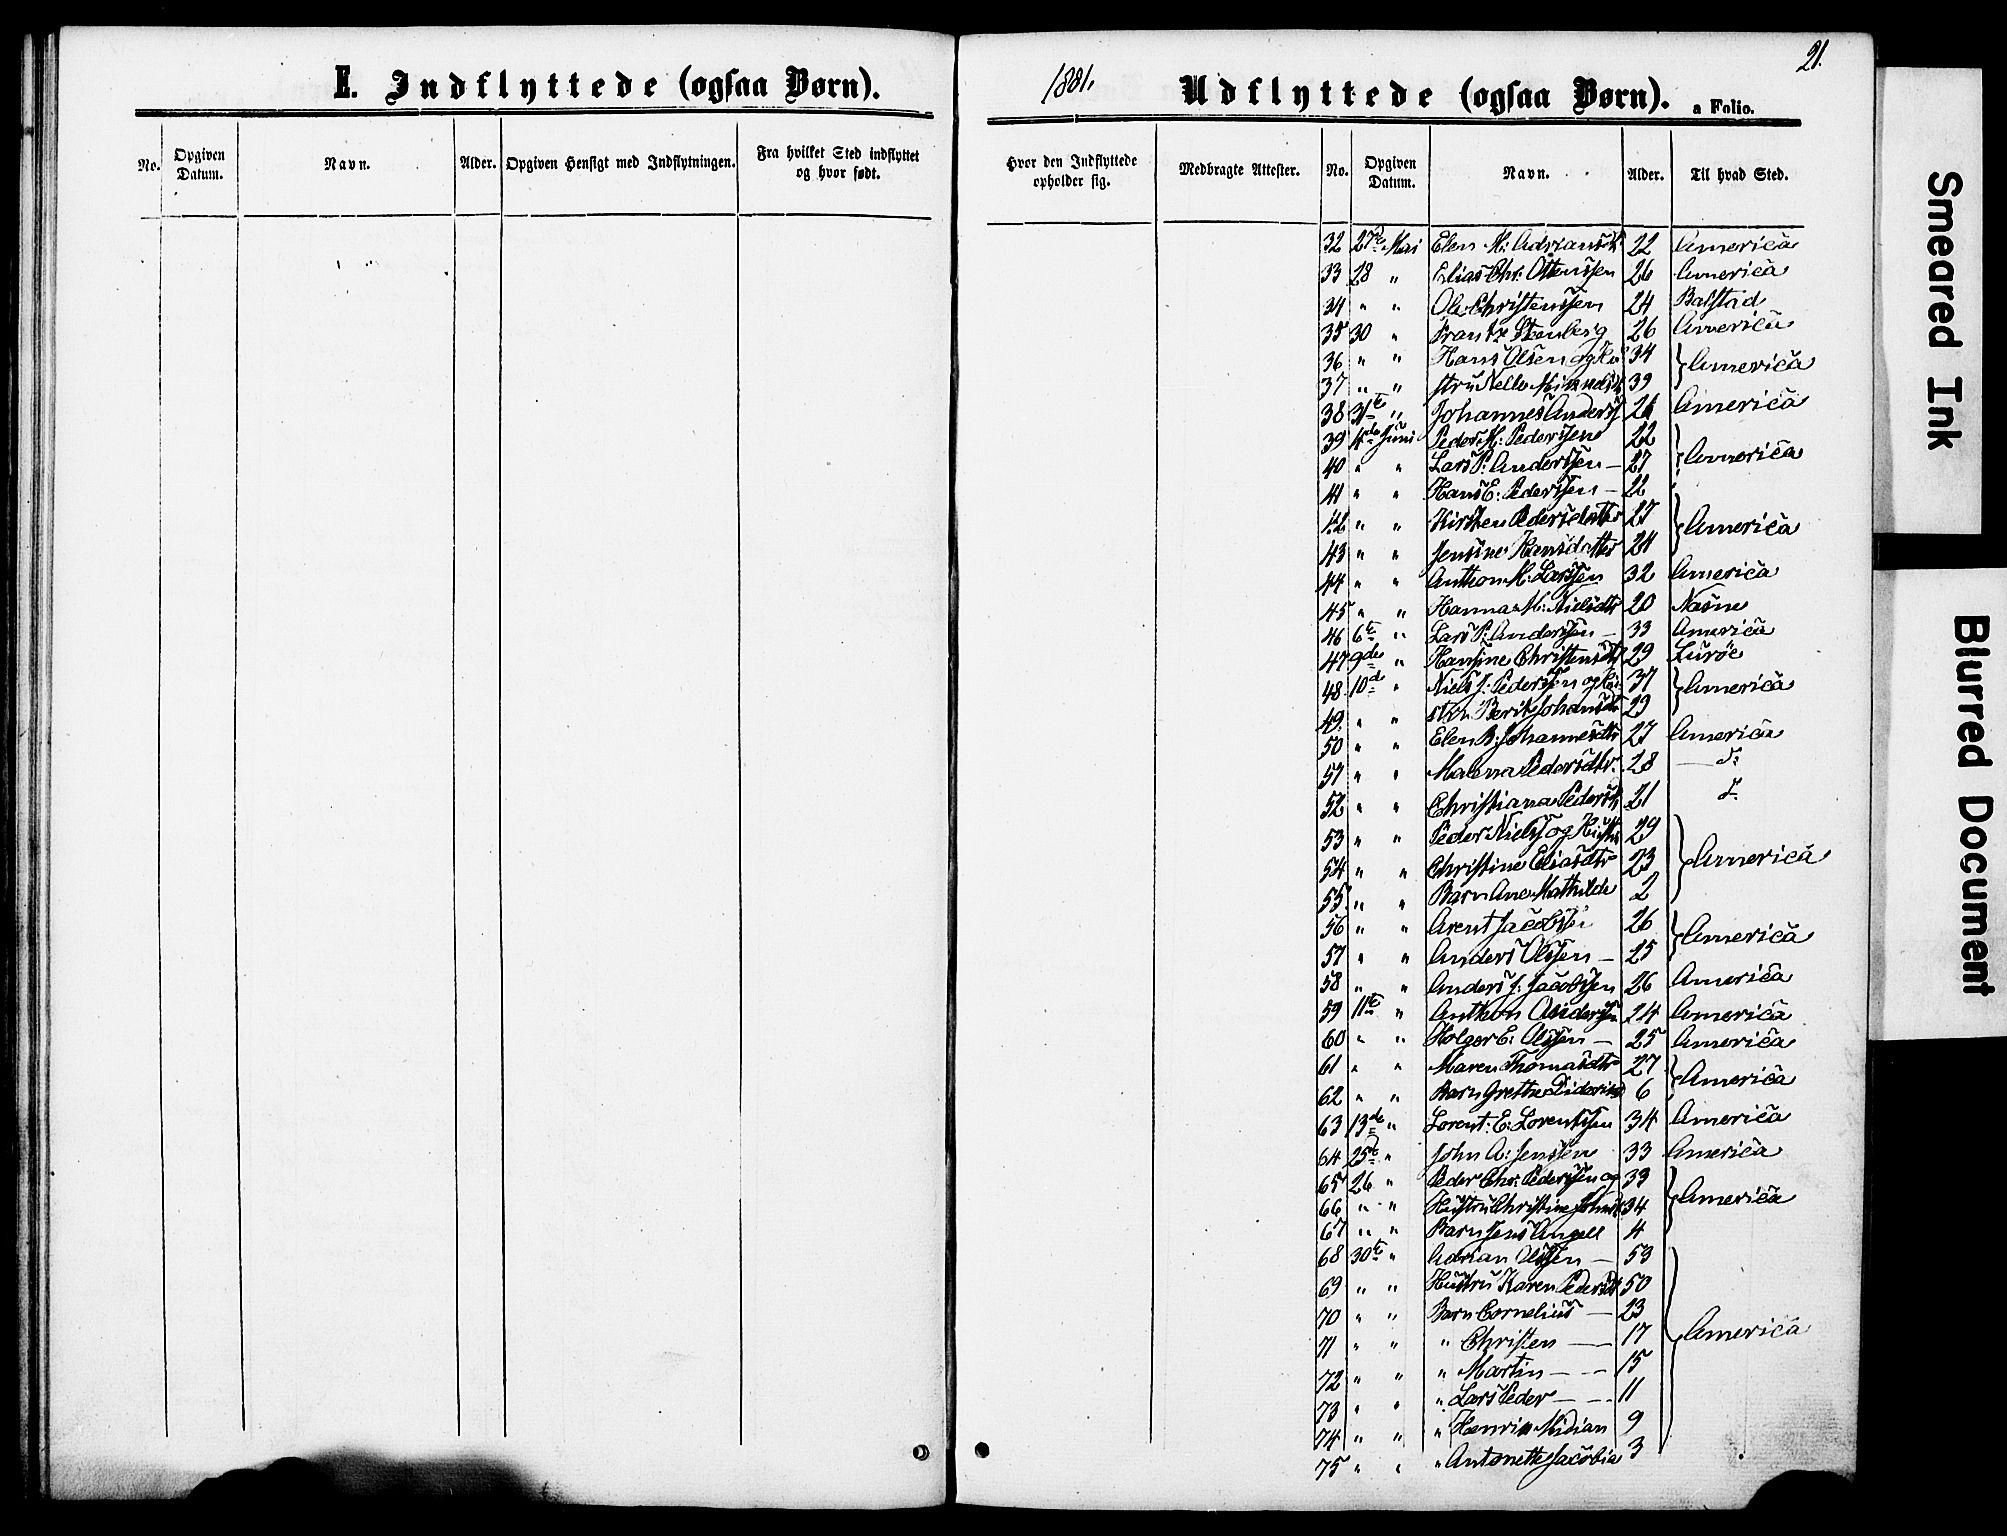 E. Indflyttede (ogsaa Børn).
No. Opgiven Datum. Navn. Alder. Opgiven Hensigt med Indflytningen. Fra hvilket Sted indflyttet og hvor født.
21.
1881. Udflyttede (ogsaa Børn). a Folio.
Hvor den Indflyttede opholder sig. Medbragte Attester. No. Opgiven Datum. Navn. Alder. Til hvad Sted.
32 27de Mai Elen M: Adriansdtr 22 America
33 28 " Elias Chr: Ottenssen 26 America
34 " " Ole Christenssen 24 Balstad
35 30 " Frantz Stenberg 26 America
36 " " Hans Olsen og Hu 34 America
37 " " stru 39
38 31te " Johannes Anderss 26 America
39 4de Juni Peder M: Pederssen 22 America
40 " " Lars P: Anderssen — 27
41 " " Hans E: Pederssen — 22
42 " " Kirsten Pedersdatter 27 America
43 " " Jensine Hansdatter 24
44 " " Anthon M: Larssen 32 America
45 " " Hanna M: Nielsdtr 20 Næsne
46 6te " Lars P: Anderssen — 33 America
47 9de " Hansine Christensdtr 29 Lurøe
48 10de " Niels J: Pederssen og Hu 37 America
49 " " stru Berit Johansdtr 29
50 " " Elen B: Johannesdtr 27 America
51 " " Malena Pedersdtr. 28 — d:
52 " " Christiana Pedersdtr 21 d:
53 " " Peder Nielss og Hustru 29 America
54 " " Christine Eliasdtr 23
55 " " Barn Ane Mathilde 2
56 " " Arent Jacobsen 26 America
57 " " Anders Olssen — 25
58 " " Anders J: Jacobssen 26 America
59 11te " Anthon Anderssen 24 America
60 " " Holger E: Olssen — 25 America
61 " " Maren Thomasdtr 27 America
62 " " Barn Grethe 6
63 13de " Lorent: E: Lorentssen 34 America
64 25de " John A: Jenssen 33 America
65 26 " Peder Chr: Pederssen og 33 America
66 " " Hustru Christine Johnsd 34
67 " " Barn Jens Angell 4
68 30te " Adrian Olssen — 53 America
69 " " Hustru Karen Pedersdt 50
70 " " Barn Cornelius — 23
71 " " " Christen — 17
72 " " " Martin — 15
73 " " " Lars Peder — 11
74 " " " Henrik Midian 9
75 " " " Antonette Jacobia 3
Smeared Ink
Blurred Document